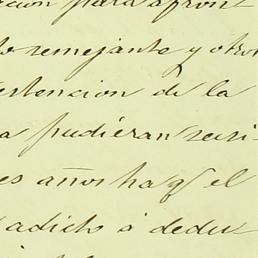 cion para afron-
to semejante y otro
estencion de la
a pudieran resi-
es años ha q el
adicto á dedu